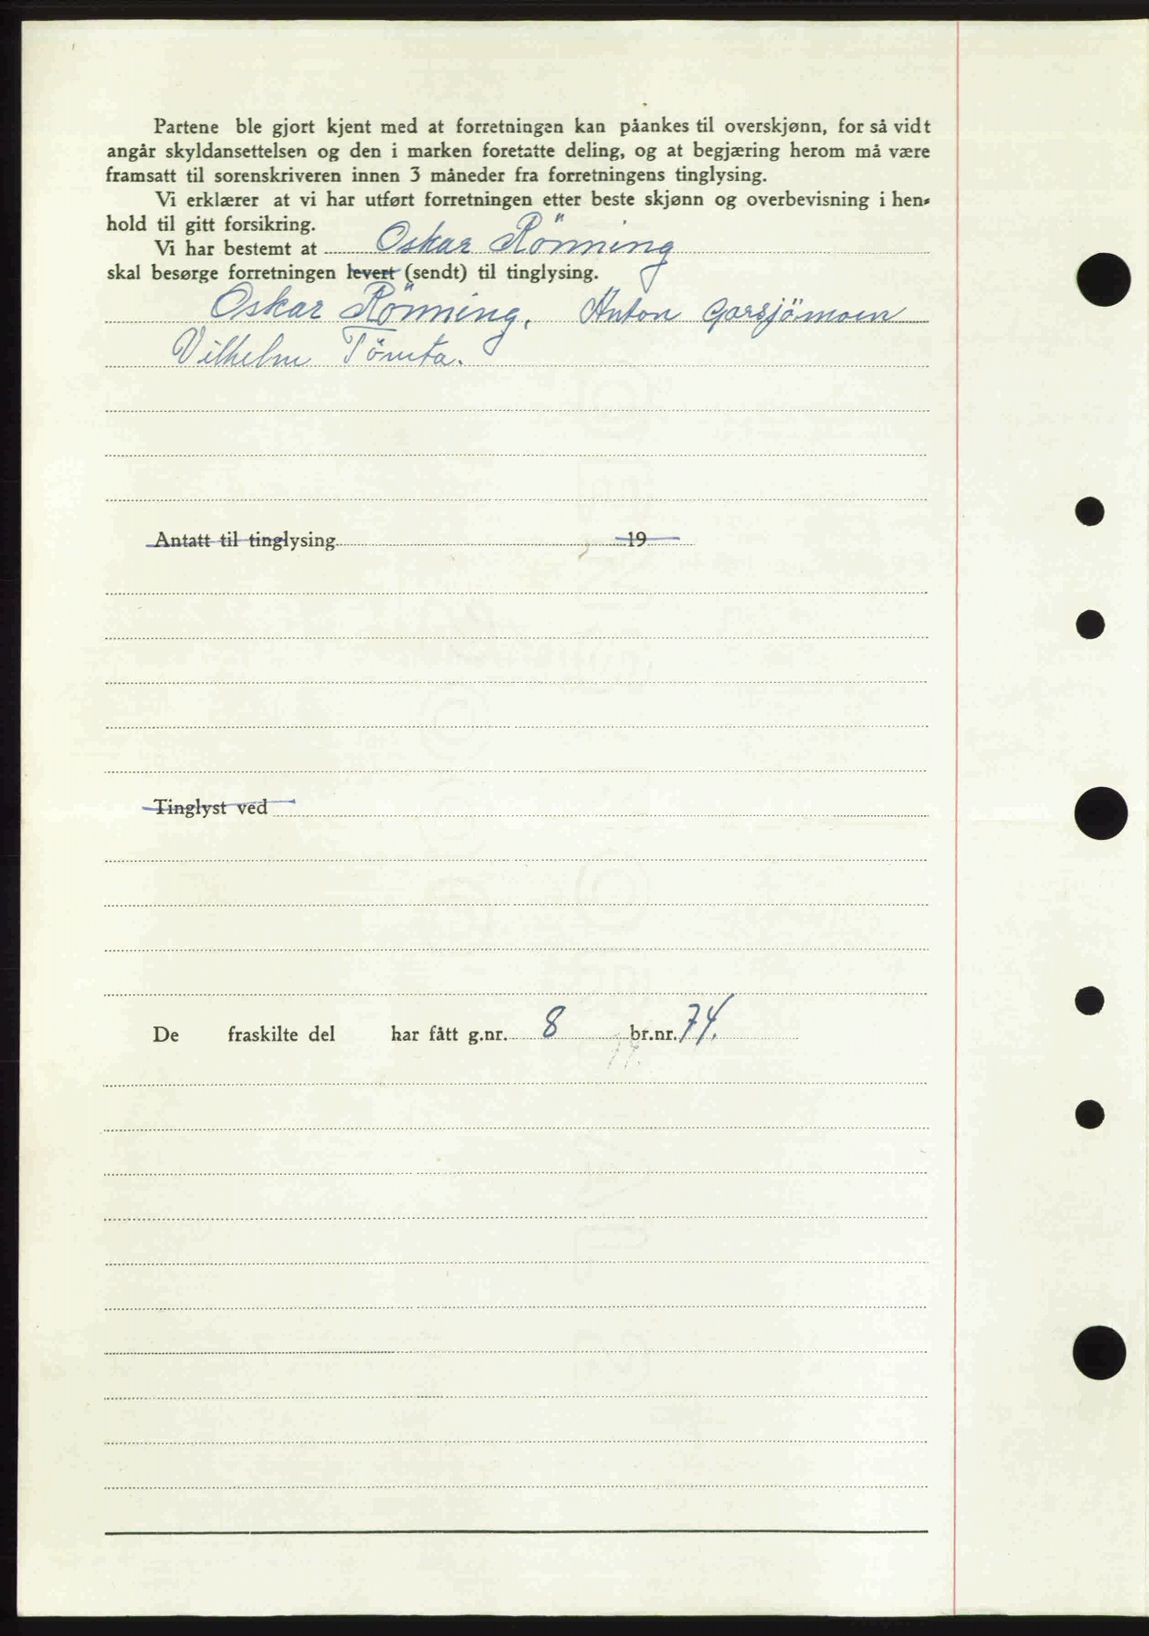 Partene ble gjort kjent med at forretningen kan påankes til overskjønn, for så vidt
angår skyldansettelsen og den i marken foretatte deling, og at begjæring herom må være
framsatt til sorenskriveren innen 3 måneder fra forretningens tinglysing.
Vi erklærer at vi har utført forretningen etter beste skjønn og overbevisning i hen-
hold til gitt forsikring.
Vi har bestemt at Oskar Rönning
skal besørge forretningen levert (sendt) til tinglysing.
Oskar Rönning. Anton Garsjömoen
Vilhelm Tömta.
Antatt til tinglysing 19
Tinglyst ved
De fraskilte del har fått g.nr. 8 br.nr. 74.